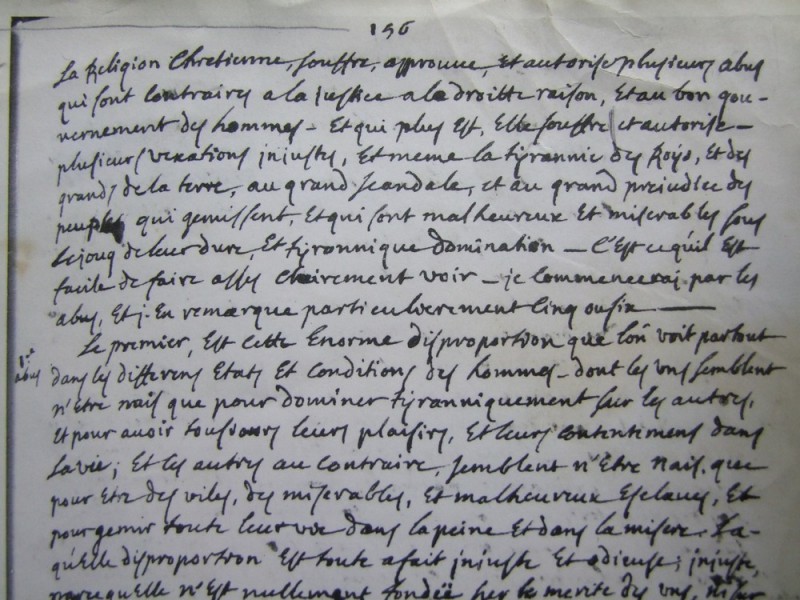 196
La Religion Chretienne, souffre, approuve, et autorise plusieurs abus
qui sont contraires a la justice a la droitte raison, et au bon gou-
vernement des hommes - et qui plus est, Elle souffre et autorise -
plusieurs vexations injustes, et meme la tyrannie des Roys, et des
grands de la terre, au grand scandale, et au grand prejudice des
peuples qui gemissent, et qui sont malheureux et miserables sous
le joug de leur dure, et tyrannique domination - C'est ce qu'il est
facile de faire asses clairement voir - je commencerai par les
abus, et j'En remarque particulierement cinq ou six -
1er abus
Le premier, est cette Enorme disproportion que l'on voit partout
dans les differens Etats et conditions des hommes - dont les uns semblent
n'etre nais que pour dominer tyranniquement sur les autres,
et pour avoir tousiours leurs plaisirs, et leurs contentemens dans
la vie; et les autres au contraire, semblent n'Etre nais, que
pour Etre des viles, des miserables, et malheureux Esclaves, et
pour gemir toute leur vie dans la peine et dans la misere. La-
qu'Elle disproportion est toute a fait injuste et odieuse; injuste,
parcequ'elle n'est nullement fondée sur le merite des uns, ni sur